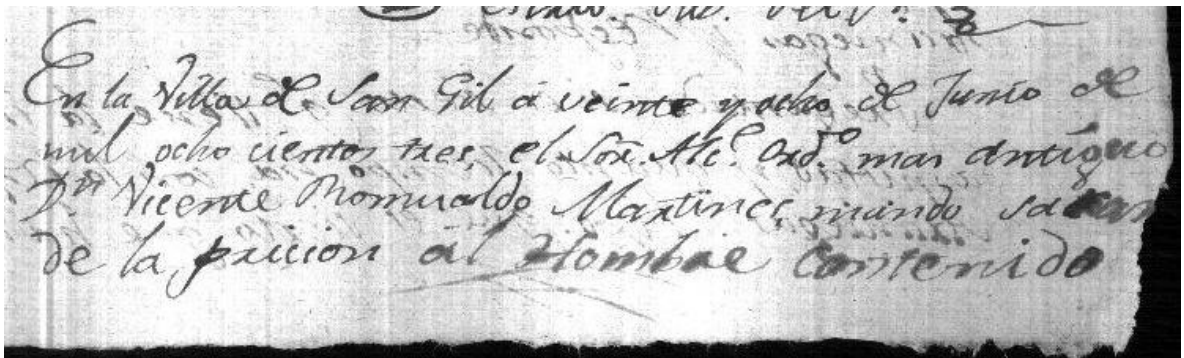 En la Villa de San Gil á veinte y ocho de Junio de
mil ocho cientos tres, el Sor. Alce. Ordo. mas antiguo
Dn Vicente Romualdo Martines, mando sacar
de la pricion al Hombre Contenido